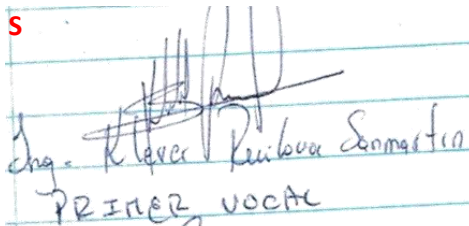 S
Ing. Klever Reinlova Sanmartin
PRIMER VOCAL